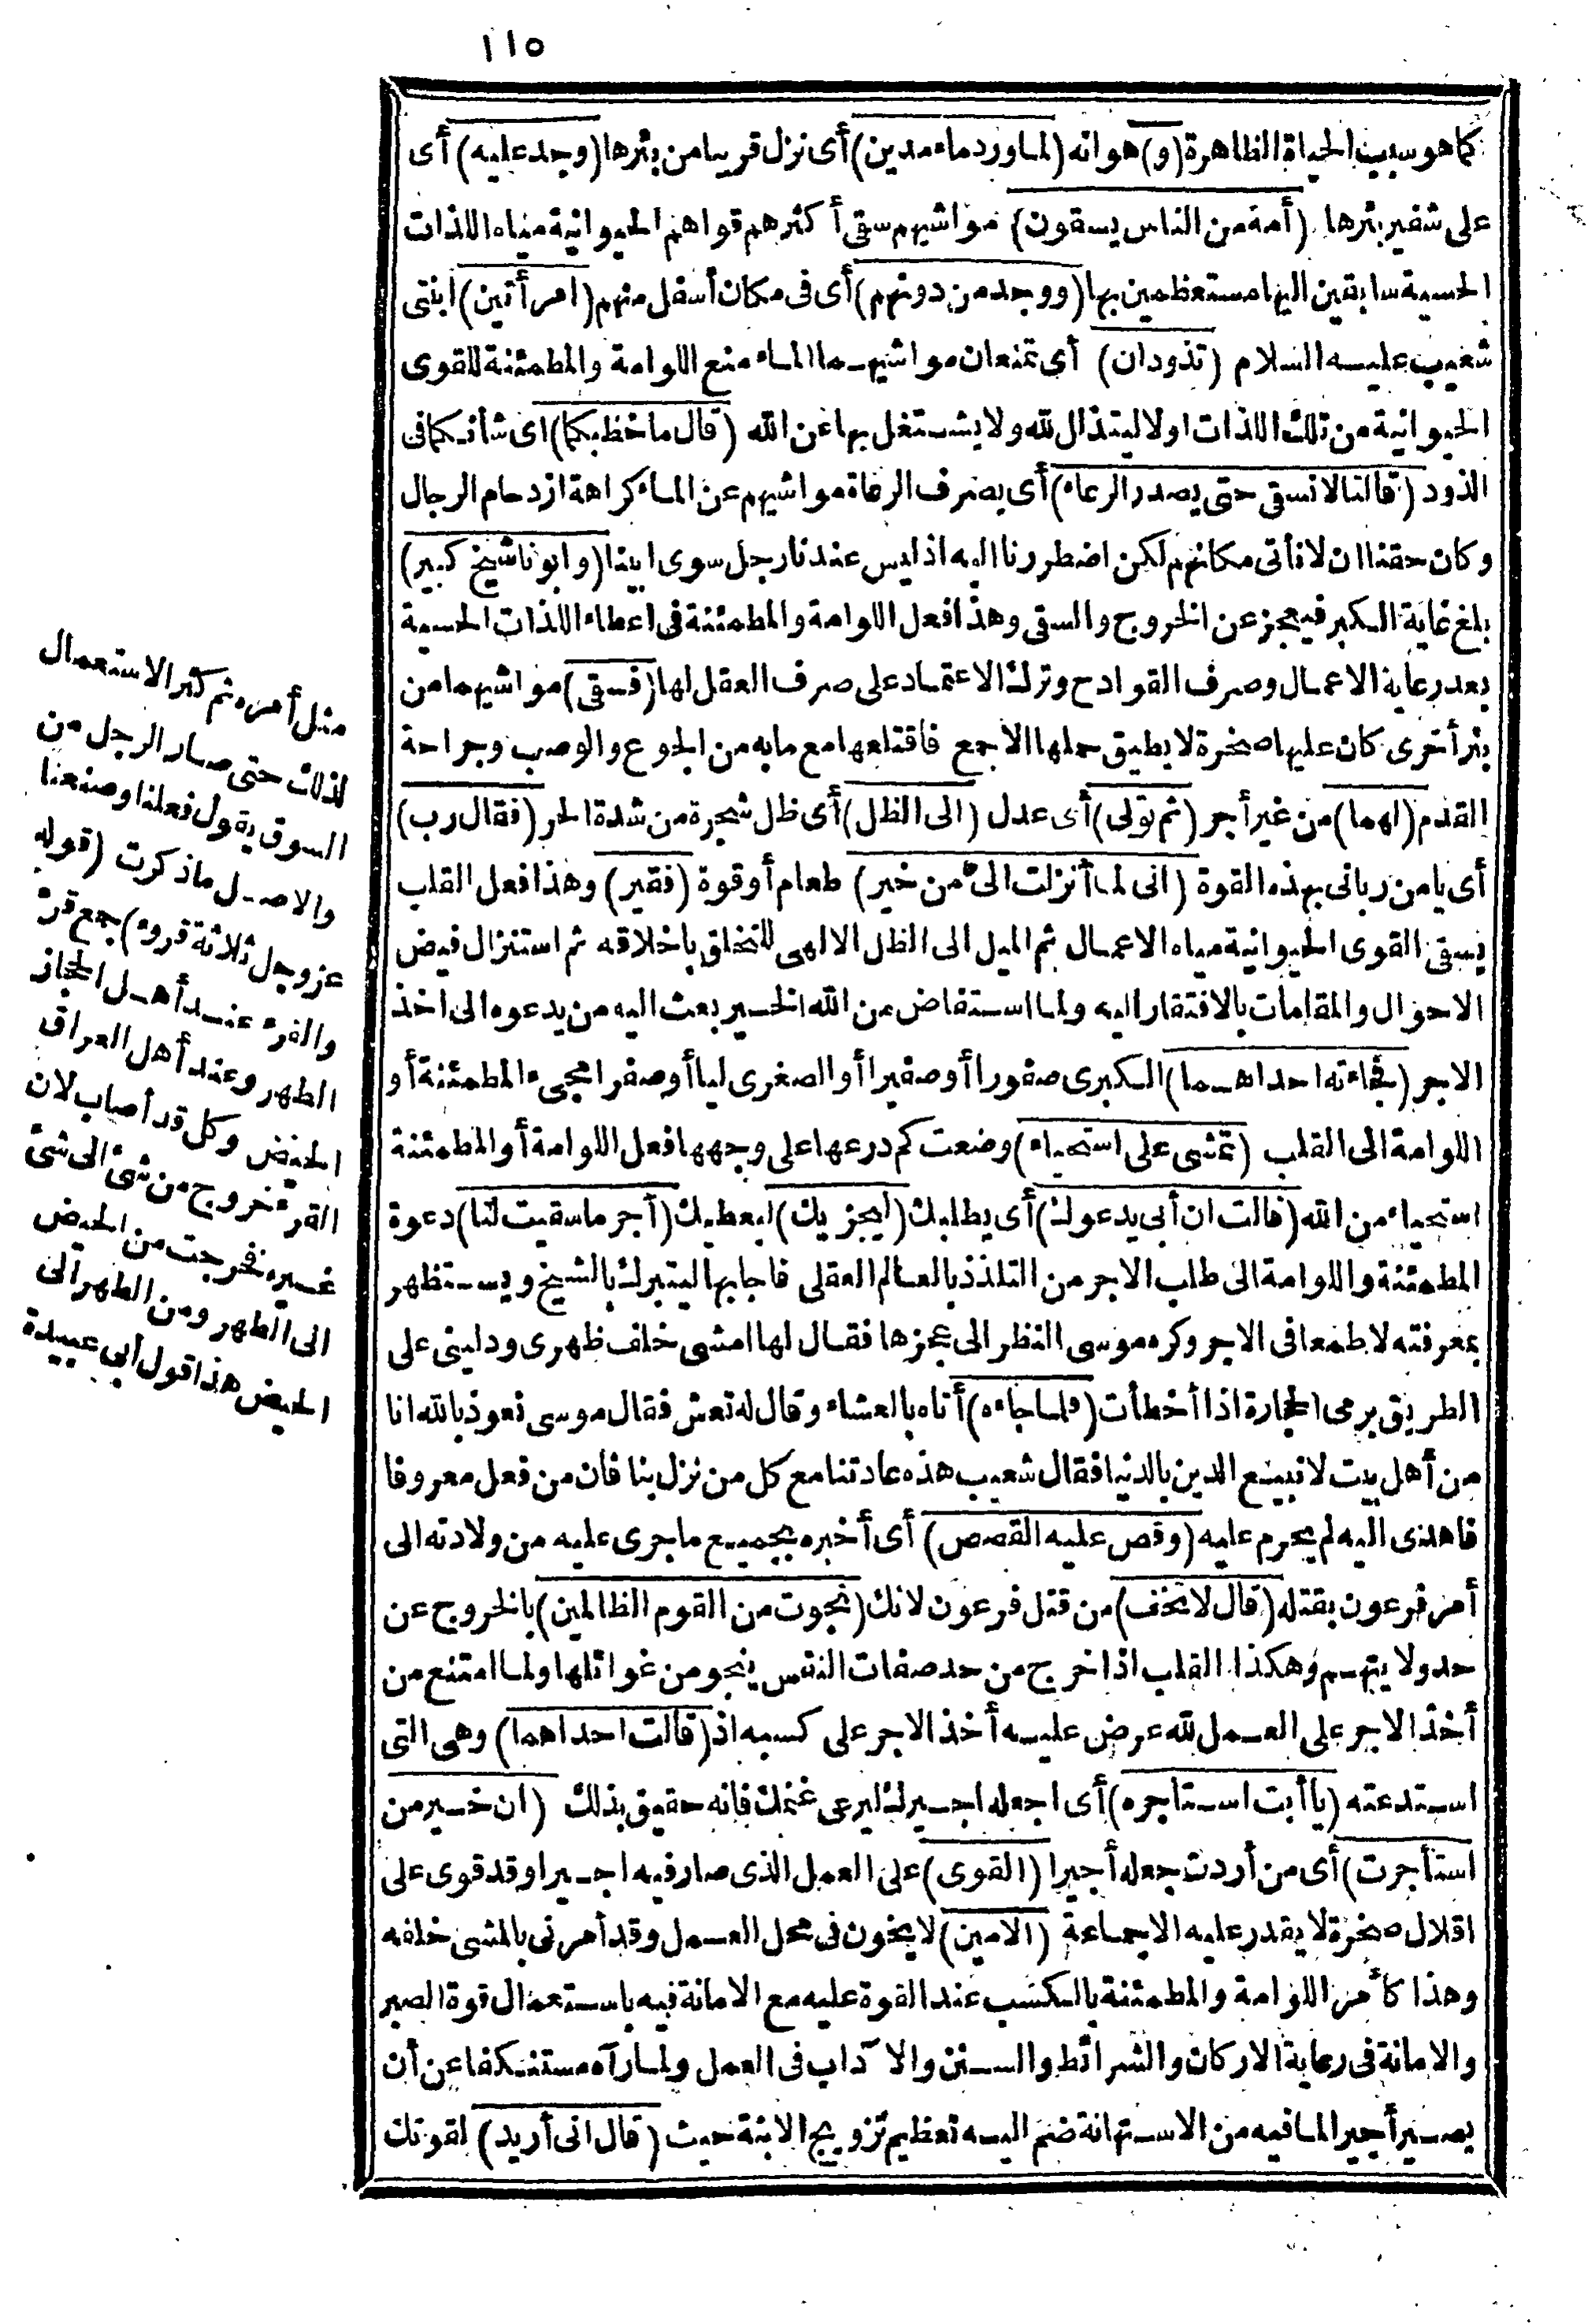 ١١٥
كما هو سبب الحياة الظاهرة (و) هو انه (لما ورد ماء مدين) أى نزل قريبا من بئرها (وجد عليه) أى
على شفير بئرها (أمة من الناس يسقون) مواشيهم سقى أكثرهم قواهم الحيوانية مياه اللذات
الحسية سابقين اليها مستعظمين بها (ووجد من دونهم) أى فى مكان أسفل منهم (امرأتين) ابنتى
شعيب عليه السلام (تذودان) أى تمنعان مواشيهما الماء منع اللوامة والمطمئنة للقوى
الحيوانية من تلك اللذات اولا ليتذلل لله ولا يشتغل بها عن الله (قال ما خطبكما) اى شأنكما فى
الذود (قالتا لا نسقى حتى يصدر الرعاء) أى يصرف الرعاة مواشيهم عن الماء كراهة ازدحام الرجال
وكان حقنا ان لا نأتى مكانهم لكن اضطررنا اليه اذ ليس عندنا رجل سوى ابينا (وابونا شيخ كبير)
بلغ غاية الكبر فيعجز عن الخروج والسقى وهذا فعل اللوامة والمطمئنة فى اعطاء اللذات الحسية
بعد رعاية الاعمال وصرف القوادح وترك الاعتماد على صرف العقل لها (فسقى) مواشيهما من
بئر أخرى كان عليها صخرة لا يطيق حملها الا جمع فاقتلعها مع ما به من الجوع والوصب وجراحة
القدم (لهما) من غير أجر (ثم تولى) أى عدل (الى الظل) أى ظل شجرة من شدة الحر (فقال رب)
أى يا من ربانى بهذه القوة (انى لما أنزلت الىّ من خير) طعام أو قوة (فقير) وهذا فعل القلب
يسقى القوى الحيوانية مياه الاعمال ثم الميل الى الظل الالهى للتخلق باخلاقه ثم استنزال فيض
الاحوال والمقامات بالافتقار اليه ولما استفاض من الله الخير بعث اليه من يدعوه الى اخذ
الاجر (فجاءته احداهما) الكبرى صفورا أو صفيرا أو الصغرى ليا أو صفرا مجىء المطمئنة أو
اللوامة الى القلب (تمشى على استحياء) وضعت كم درعها على وجهها فعل اللوامة أو المطمئنة
استحياء من الله (قالت ان أبى يدعوك) أى يطلبك (ليجزيك) ليعطيك (أجر ما سقيت لنا) دعوة
المطمئنة واللوامة الى طلب الاجر من التلذذ بالعالم العقلى فاجابها ليتبرك بالشيخ ويستظهر
بمعرفته لا طمعا فى الاجر وكره موسى النظر الى عجزها فقال لها امشى خلف ظهرى ودلينى على
الطريق برمى الحجارة اذا أخطأت (فلما جاءه) أتاه بالعشاء وقال له تعش فقال موسى نعوذ بالله انا
من أهل بيت لا نبيع الدين بالدنيا فقال شعيب هذه عادتنا مع كل من نزل بنا فان من فعل معروفا
فاهدى اليه لم يحرم عليه (وقص عليه القصص) أى أخبره بجميع ما جرى عليه من ولادته الى
أمر فرعون بقتله (قال لا تخف) من قتل فرعون لانك (نجوت من القوم الظالمين) بالخروج عن
حدولايتهم وهكذا القلب اذا خرج من حد صفات النفس ينجو من غوائلها ولما امتنع من
أخذ الاجر على العمل لله عرض عليه أخذ الاجر على كسبه اذ (قالت احداهما) وهى التى
استدعته (يا أبت استأجره) أى اجعله اجيرك ليرعى غنمك فانه حقيق بذلك (ان خير من
استأجرت) أى من أردت جعله أجيرا (القوى) على العمل الذى صار فيه اجيرا وقد قوى على
اقلال صخرة لا يقدر عليه الا جماعة (الامين) لا يخون فى محل العمل وقد أمرنى بالمشى خلفه
وهذا كأمر اللوامة والمطمئنة بالكسب عند القوة عليه مع الامانة فيه باستعمال قوة الصبر
والامانة فى رعاية الاركان والشرائط والسنن والآداب فى العمل ولما رآه مستنكفا عن أن
يصير أجيرا لما فيه من الاستهانة ضم اليه تعظيم تزويج الابنة حيث (قال انى أريد) لقوتك
مثل أمره ثم كثر الاستعمال
لذلك حتى صار الرجل من
السوق يقول فعلنا وصنعنا
والاصل ما ذكرت (قوله
عز وجل ثلاثة قروء) جمع قرء
والقرء عند أهل الحجاز
الطهر وعند أهل العراق
الحيض وكل قد أصاب لان
القرء خروج من شئ الى شئ
غيره فخرجت من الحيض
الى الطهر ومن الطهر الى
الحيض هذا قول أبى عبيدة